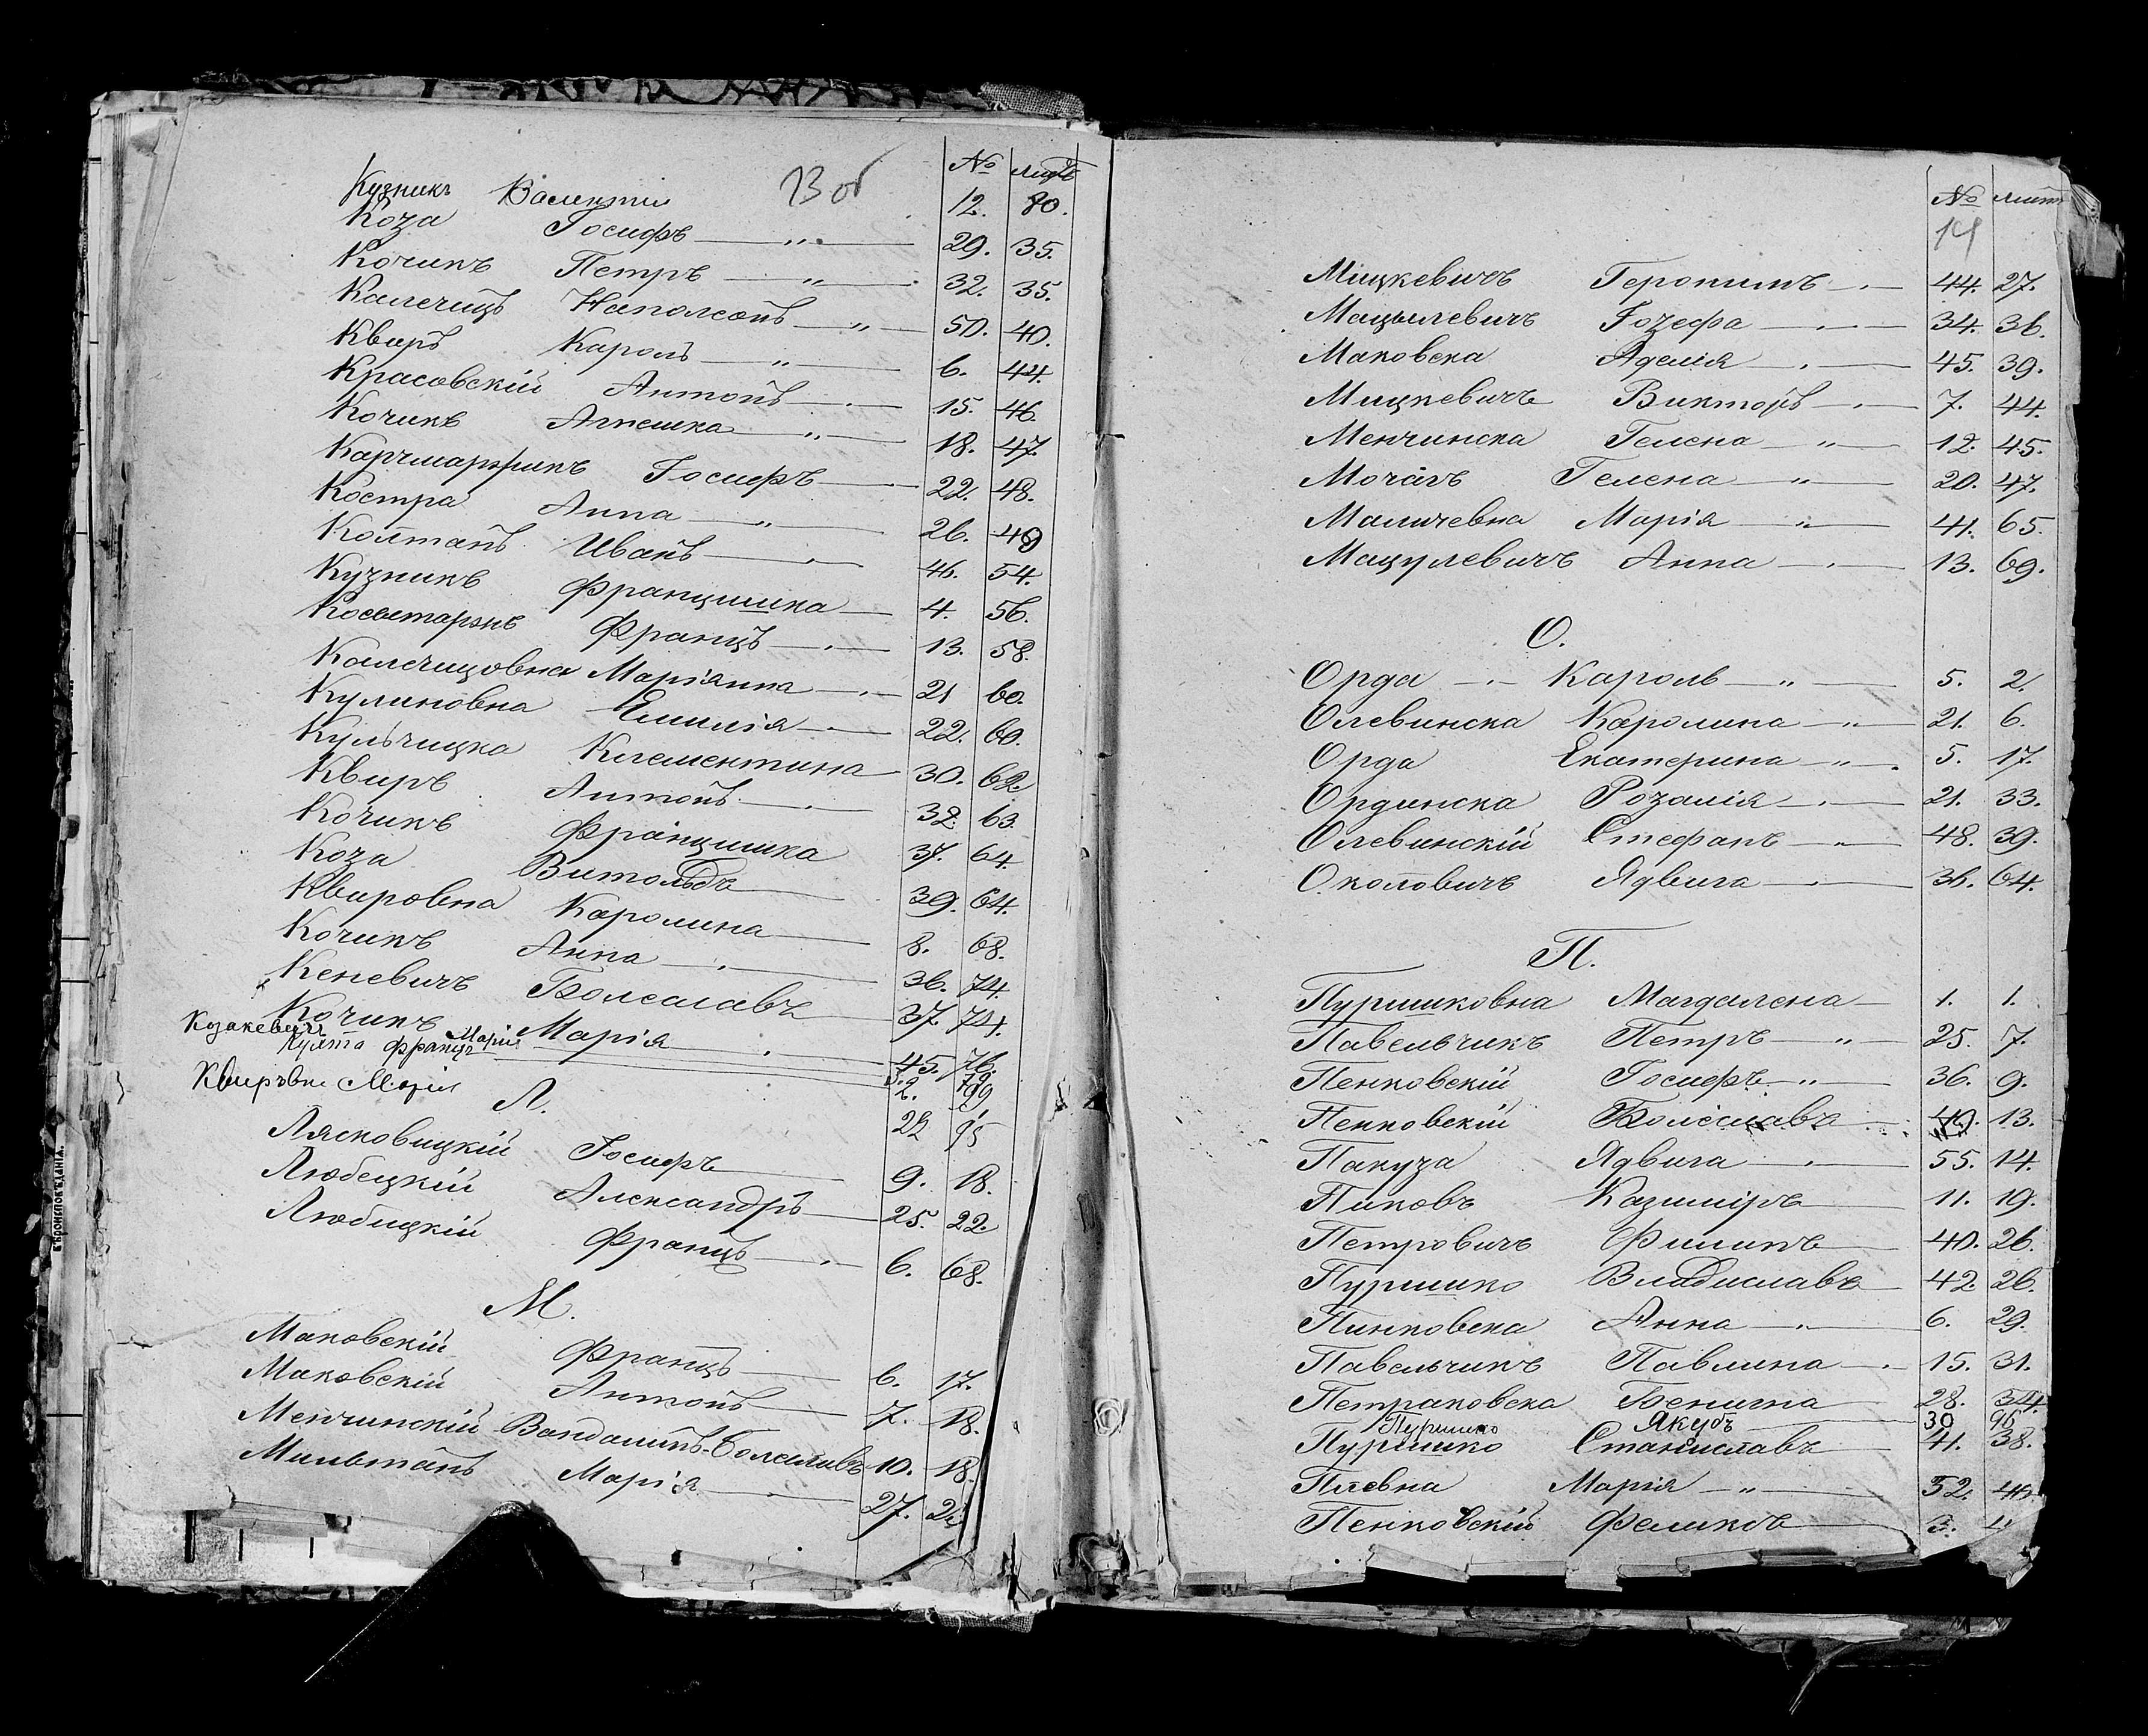 13 об
№ листъ
Кузникъ Валенти 12. 80.
Коза Іосифъ — „ — 29. 35.
Кочикъ Петръ — „ — 32. 35.
Калечицъ Наполеонъ — „ — 50. 40.
Квиръ Кароль — „ — 6. 44.
Красовскій Антонъ — 15. 46.
Кочикъ Агнешка — „ — 18. 47.
Карчмаржикъ Іосифъ — 22. 48.
Костра Анна — „ — 26. 49
Колтанъ Иванъ — 46. 54.
Кузникъ Францишка — 4. 56.
Францъ — 13. 58.
Калечицовна Маріанна — 21 60.
Куликовна Емилія — 22. 60.
Кульчицка Клементина — 30. 62.
Квиръ Антонъ — 32. 63.
Кочикъ Францишка 37. 64.
Коза Витольдъ — 39. 64.
Квировна Каролина — 8. 68.
Кочикъ Анна — 36. 74.
Кеневичъ Болеславъ 37. 74.
Кочикъ Марія — 45. 76.
Козакевичъ Марія
Францъ
Квирувна Марія 22 95
Л.
Лясковицкій Іосифъ — 9. 18.
Любецкій Александръ — 25. 22.
Любицкій Францъ — 6. 68.
М.
Маковскій Францъ — 6. 17.
Маковскій Антонъ — 7. 18.
Менчинскій Вандалинъ-Болеславъ 10. 18.
Мильтанъ Марія — 27. 2
№ листъ
14
Мицкевичъ Геронимъ — 44. 27.
Мацылевичъ Іозефа — 34. 36.
Маковска Аделія — 45. 39.
Мицкевичъ Викторъ — 7. 44.
Менчинска Гелена — „ — 12. 45.
Мочагъ Гелена — „ — 20. 47.
Маличевна Марія „ — 41. 65.
Мацулевичъ Анна — 13. 69.
О.
Орда — Кароль — „ — 5. 2.
Олевинска Каролина — „ — 21. 6.
Орда Екатерина — „ — 5. 17.
Ординска Розалія — 21. 33.
Олевинскій Стефанъ — „ — 48. 39.
Околовичъ Ядвига — 36. 64.
П.
Пуришковна Магдалена — 1. 1.
Павельчикъ Петръ — „ — 25. 7.
Пенковскій Іосифъ — „ — 36. 9.
Пенковскій Болеславъ 13.
Пакуза Ядвига — 55. 14.
Пиковъ Казиміръ — 11. 19.
Петровичъ Филипъ — 40. 26.
Пуришко Владиславъ — 42 26.
Пинковска Анна — 6. 29.
Павельчикъ Павлина — 15. 31.
Петраковска Бенигна 28. 34.
Пуришко Якубъ 39 96
Пуришко Станиславъ — 41. 38.
Плевна Марія — „ — 52. 40.
Пенковскій Феликсъ — 3.